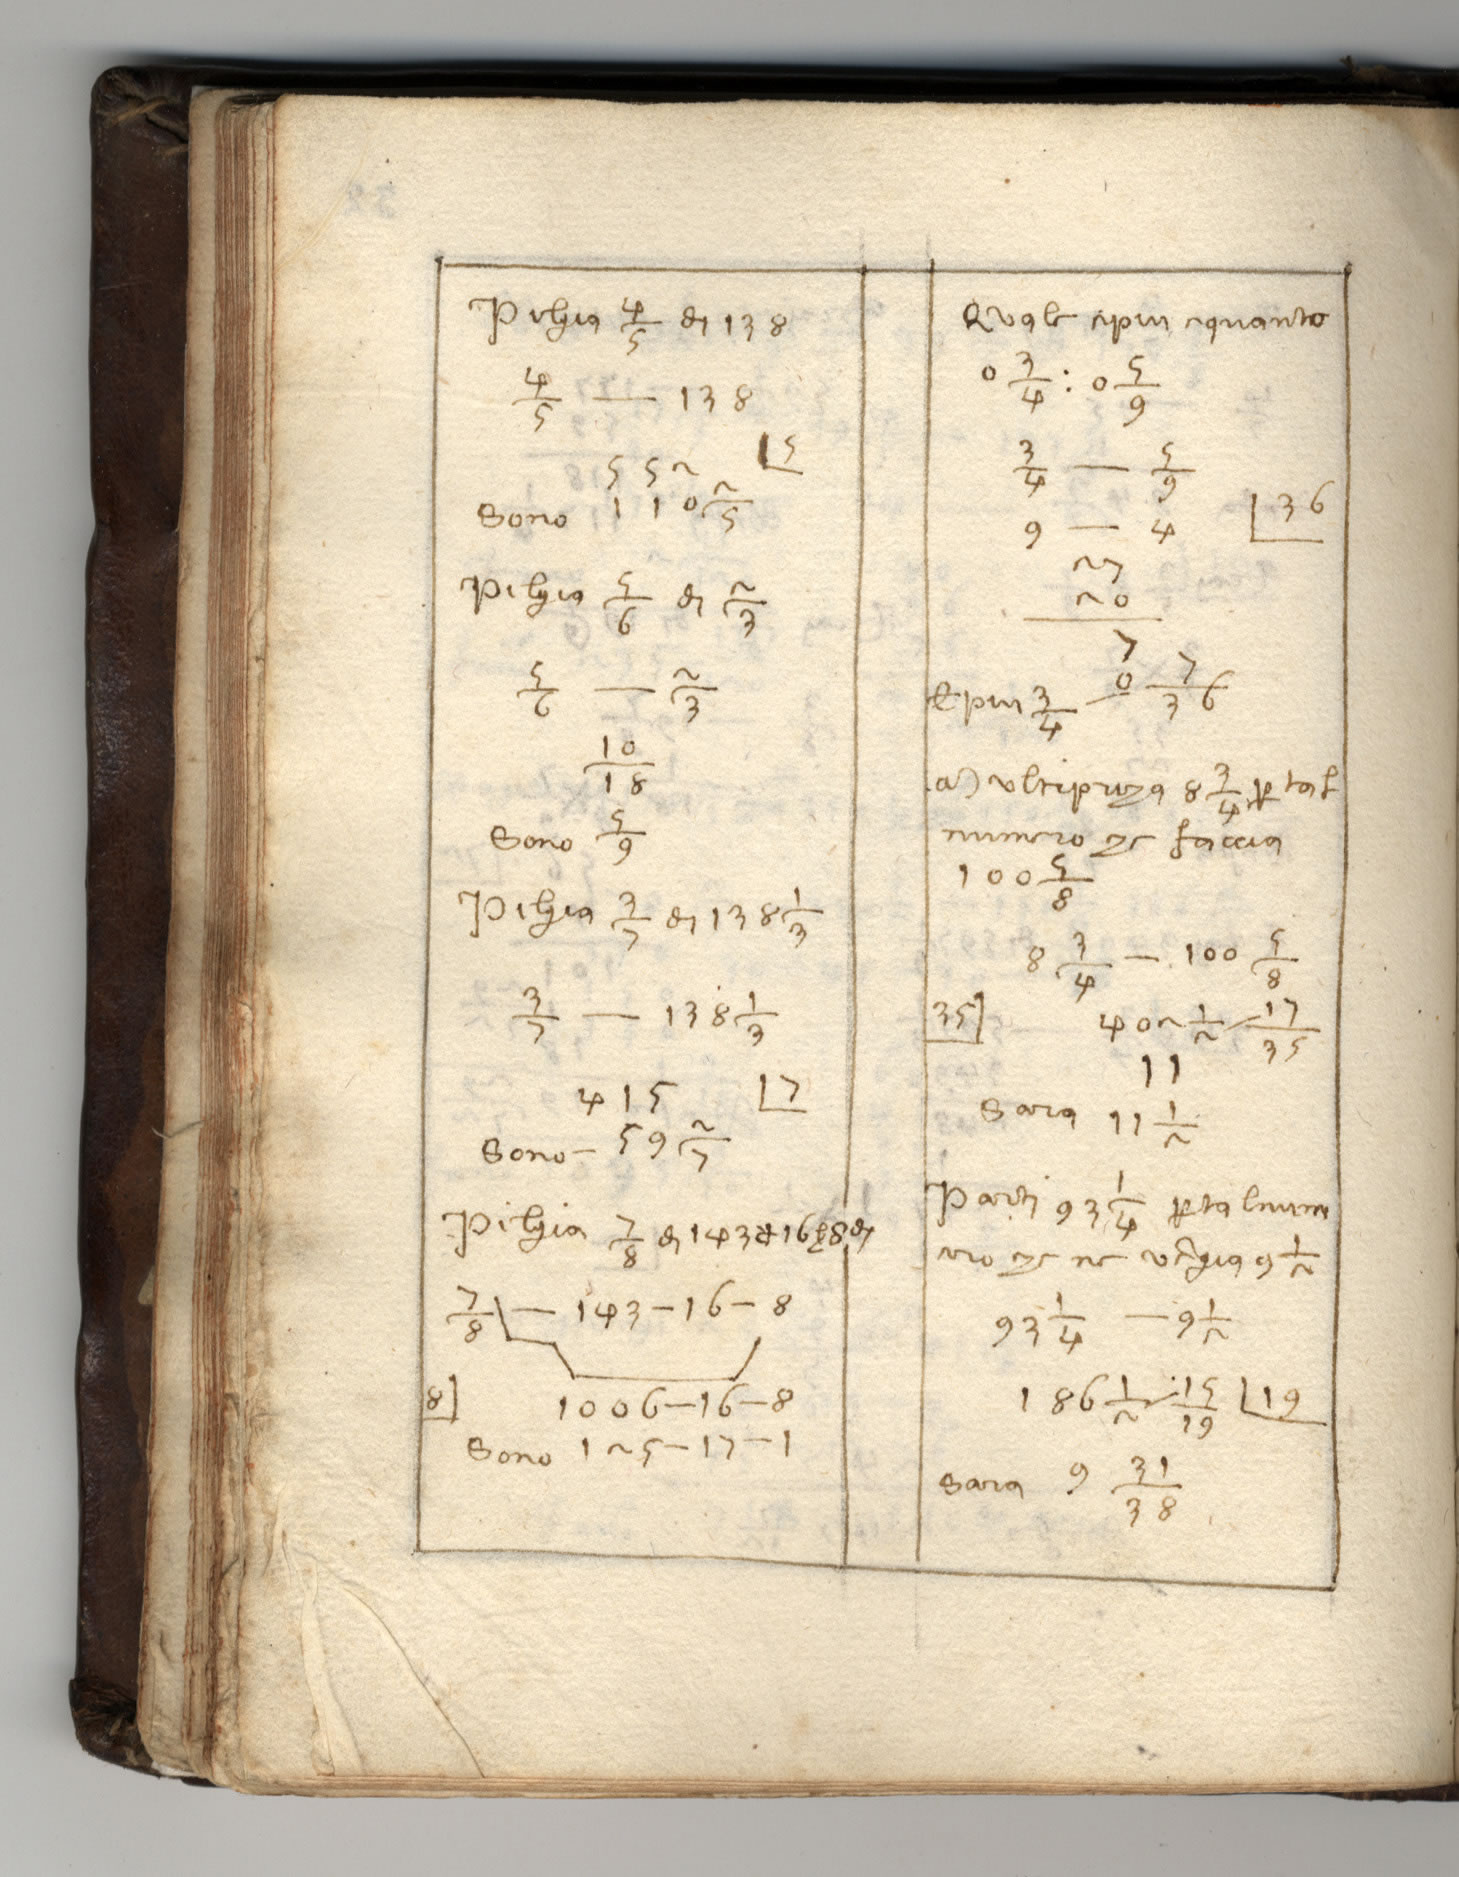 Pilgia 4/5 di 138
4/5 — 138
552 |5
Sono 110 2/5
Pilgia 5/6 di 2/3
5/6 — 2/3
10/18
Sono 5/9
Pilgia 3/7 di 138 1/3
3/7 — 138 1/3
415 |7
Sono – 59 2/7
Pilgia 7/8 di 143 16 8 di
7/8 — 143 – 16 – 8
8| 1006 – 16 – 8
Sono 125 – 17 – 1
Quale epiu equanto
0 3/4 : 0 5/9
3/4 — 5/9
9 — 4 |36
27
20
7
Epiu 3/4 – 0 7/36
Multipriza 8 3/4 p tal
numero che faccia
100 5/8
8 3/4 — 100 5/8
35| 402 1/2 – 17/35
11
Sara 11 1/2
Parti 93 1/4 p tal num
ro che ne vēgia 9 1/2
93 1/4 — 9 1/2
186 1/2 – 15/19 |19
Sara 9 31/38